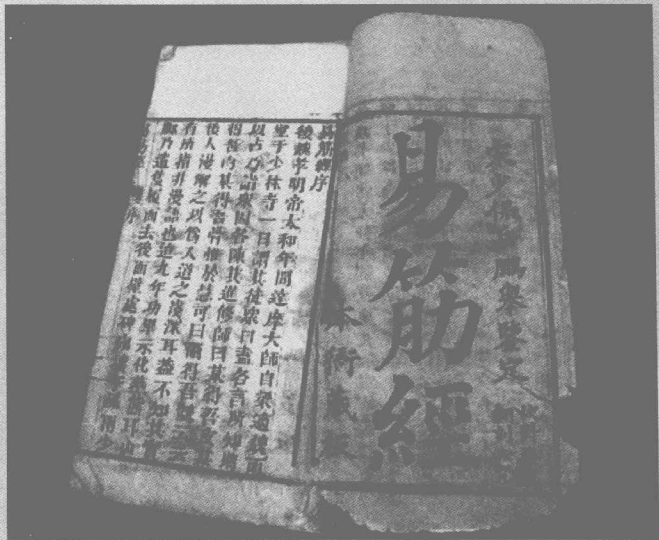 宋少保岳鵬舉鑒定
易筋經
本衙藏板
易筋經序
後魏孝明帝太和年間達摩大師自梁適魏面
壁于少林寺一日謂其徒衆曰盍各言所知將
以占乃詣衆因各陳其進修師曰某得吾皮某
得吾肉某得吾骨惟於慧可曰爾得吾髓云云
後人漫解之以爲入道之淺深耳蓋不知其實
有所指非漫語也迨九年功畢示化葬熊耳山
脚乃遺隻履而去後面壁處碑砌壞於風雨少